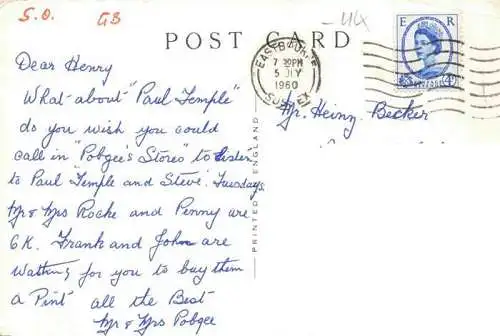 S.O. GB
- 44
POST CARD
EASTBOURNE
7 30PM
5 JLY
1960
SUSSEX
E R
4D
Dear Henry
What about "Paul Temple"
do you wish you could
call in "Pobgee's Stores" to listen
to Paul Temple and Steve. Tuesdays
Mr & Mrs Rocke and Penny are
O.K. Frank and John are
Waiting for you to buy them
a Pint all the Best
Mr & Mrs Pobgee
Mr. Heinz Becker
PRINTED IN ENGLAND